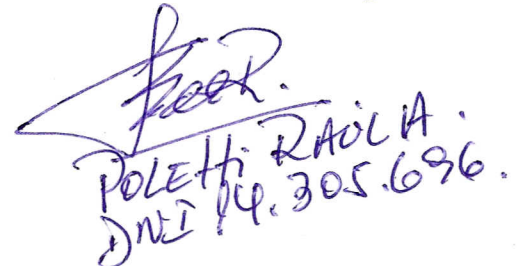 POLETTI RAÚL A.
DNI 14.305.696.